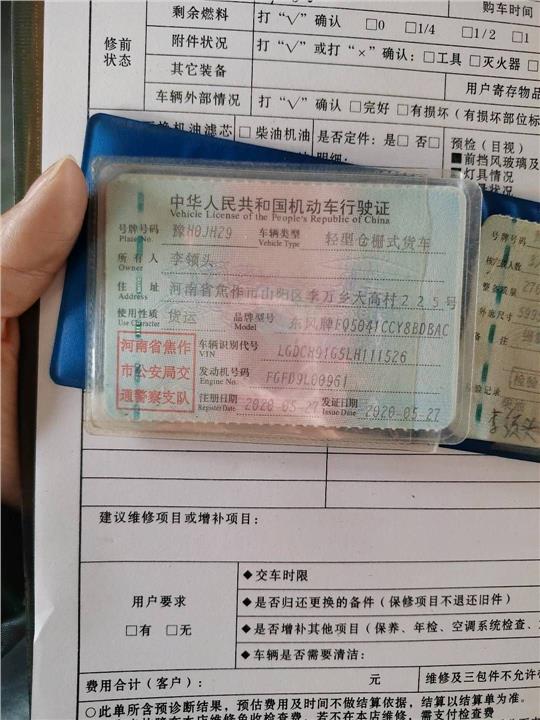 购车时间
剩余燃料 打“√”确认 □0 □1/4 □1/2 □1
修前状态
附件状况 打“√”或打“×”确认：□工具 □灭火器
其它装备 用户寄存物品
车辆外部情况 打“√”确认 □完好 □有损坏（有损坏部位标
换机油滤芯 □ 柴油机油 是否定件：是□ 否□ 预检（目视）
明细： ■前挡风玻璃及
灯具情况
中华人民共和国机动车行驶证
Vehicle License of the People's Republic of China
号牌号码 豫H0JH29 车辆类型 轻型仓栅式货车
Plate No. Vehicle Type
所有人 李领头
Owner
住址 河南省焦作市山阳区李万乡大高村225号
Address
使用性质 货运 品牌型号 东风牌EQ5041CCY8BDBAC
Use Character Model
河南省焦作
市公安局交
通警察支队
车辆识别代号 LGDCH91G5LH111526
VIN
发动机号码 FGFD9L00961
Engine No.
注册日期 2020-05-27 发证日期 2020-05-27
Register Date Issue Date
号牌号码
整备质量
外廓尺寸
检验记录
建议维修项目或增补项目：
用户要求
□有 □无
◆交车时限
◆是否归还更换的备件（保修项目不退还旧件）
◆是否增补其他项目（保养、年检、空调系统检查、
◆车辆是否需要清洁：
费用合计（客户）： 元 维修及三包件不允许
○此单所含预诊断结果，预估费用及时间不做结算依据，结算以结算单为准。
本店维修，免收检查费。若不在本店维修，需支付检查费。